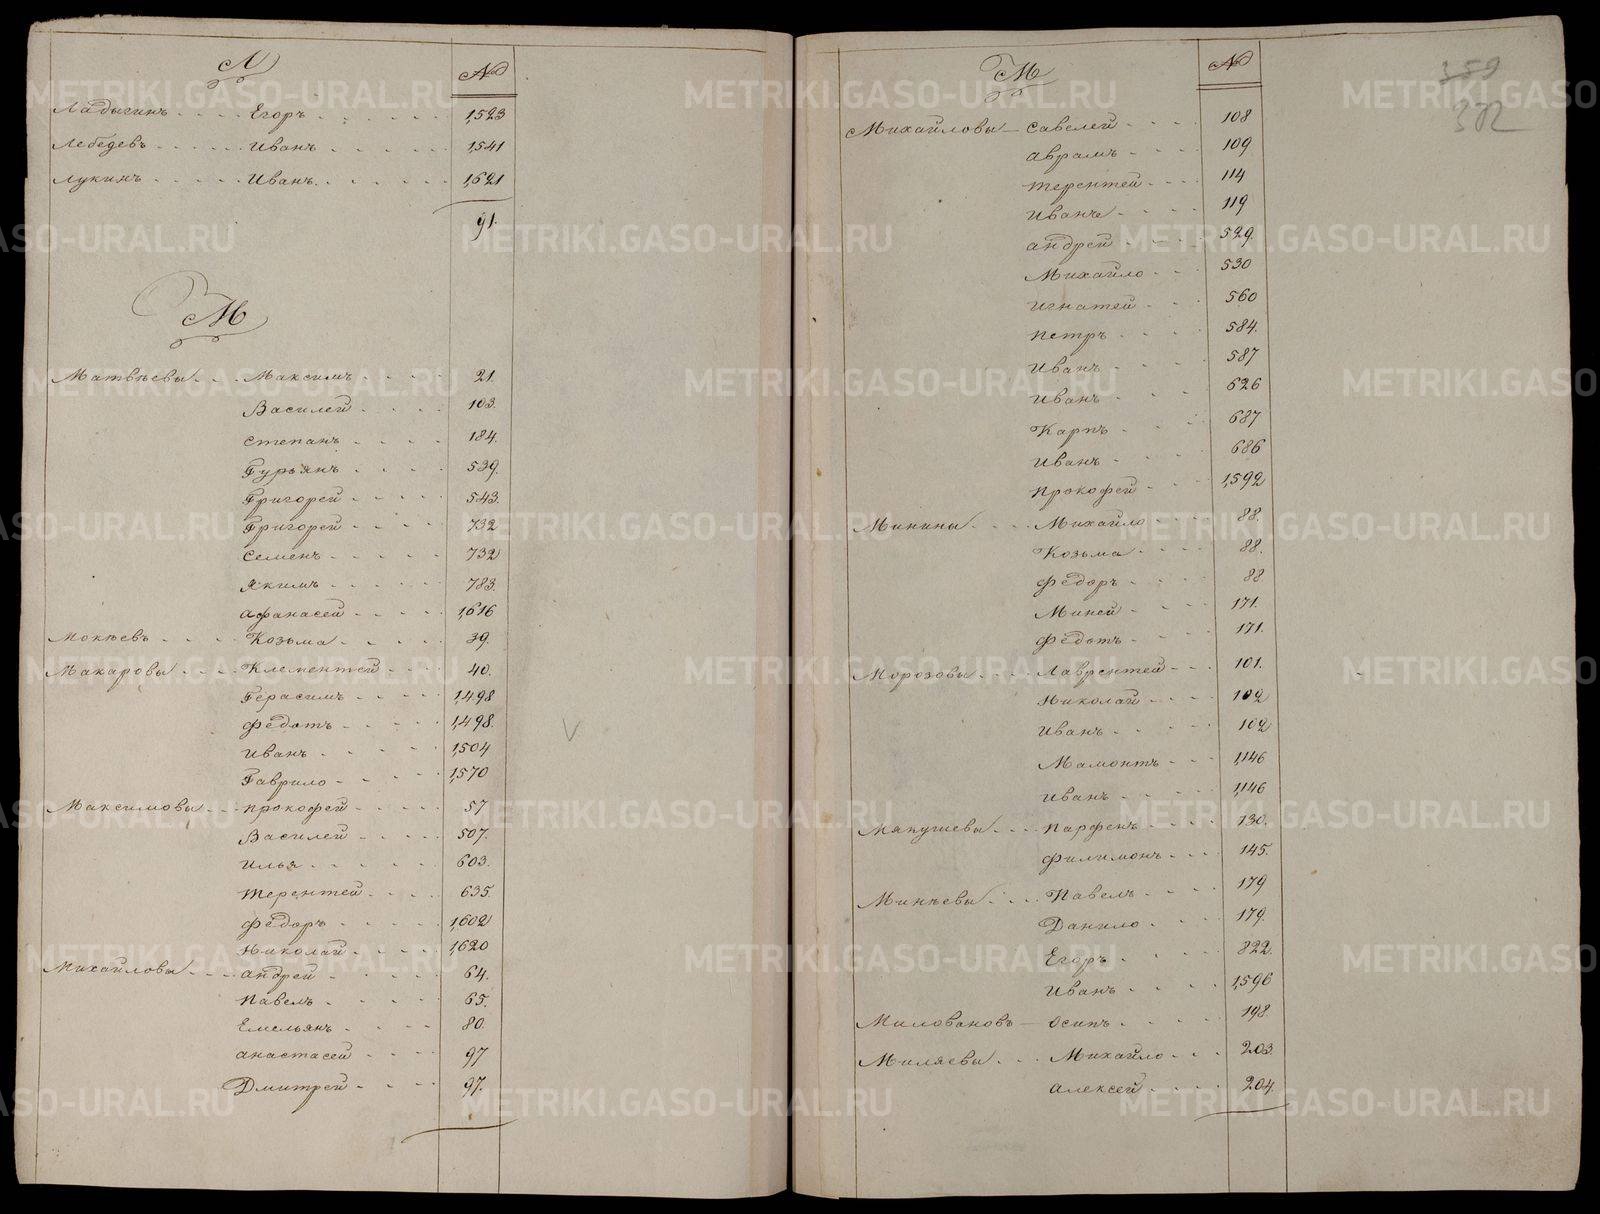 Л №
Ладыгинъ Егоръ 1,523
Лебедевъ Иванъ 1,541
Лукинъ Иванъ 1,621
91.
М
Матвѣевы Максимъ 21.
Василей 103.
Степанъ 184.
Гурьянъ 539.
Григорей 543.
Григорей 732
Семенъ 732
Якимъ 783.
Афанасей 1,616
Мокѣевъ Козьма 39.
Макаровы Клементей 40.
Герасимъ 1,498
Федотъ 1,498.
Иванъ 1,504
Гаврило 1,570
Максимовы Прокофей 57
Василей 507.
Илья 603.
Терентей 635.
Федоръ 1,602
Николай 1,620
Михайловы Андрей 64.
Павелъ 65.
Емельянъ 80.
Анастасей 97
Дмитрей 97.
М №
359
302
Михайловы Савелей 108
Аврамъ 109
Терентей 114
Иванъ 119
Андрей 529.
Михайло 530
Игнатей 560
Петръ 584.
Иванъ 587
Иванъ 626
Карпъ 687
Иванъ 686
Прокофей 1,592
Минины Михайло 88.
Козьма 88.
Федоръ 88
Миней 171.
Федотъ 171.
Морозовы Лаврентей 101.
Николай 102
Иванъ 102
Мамонтъ 1,146
Иванъ 1,146
Мякушевы Парфенъ 130.
Филимонъ 145.
Минѣевы Павелъ 179
Данило 179.
Егоръ 822.
Иванъ 1,596
Миловановъ Осипъ 198.
Миляевы Михайло 203.
Алексей 204
METRIKI.GASO-URAL.RU